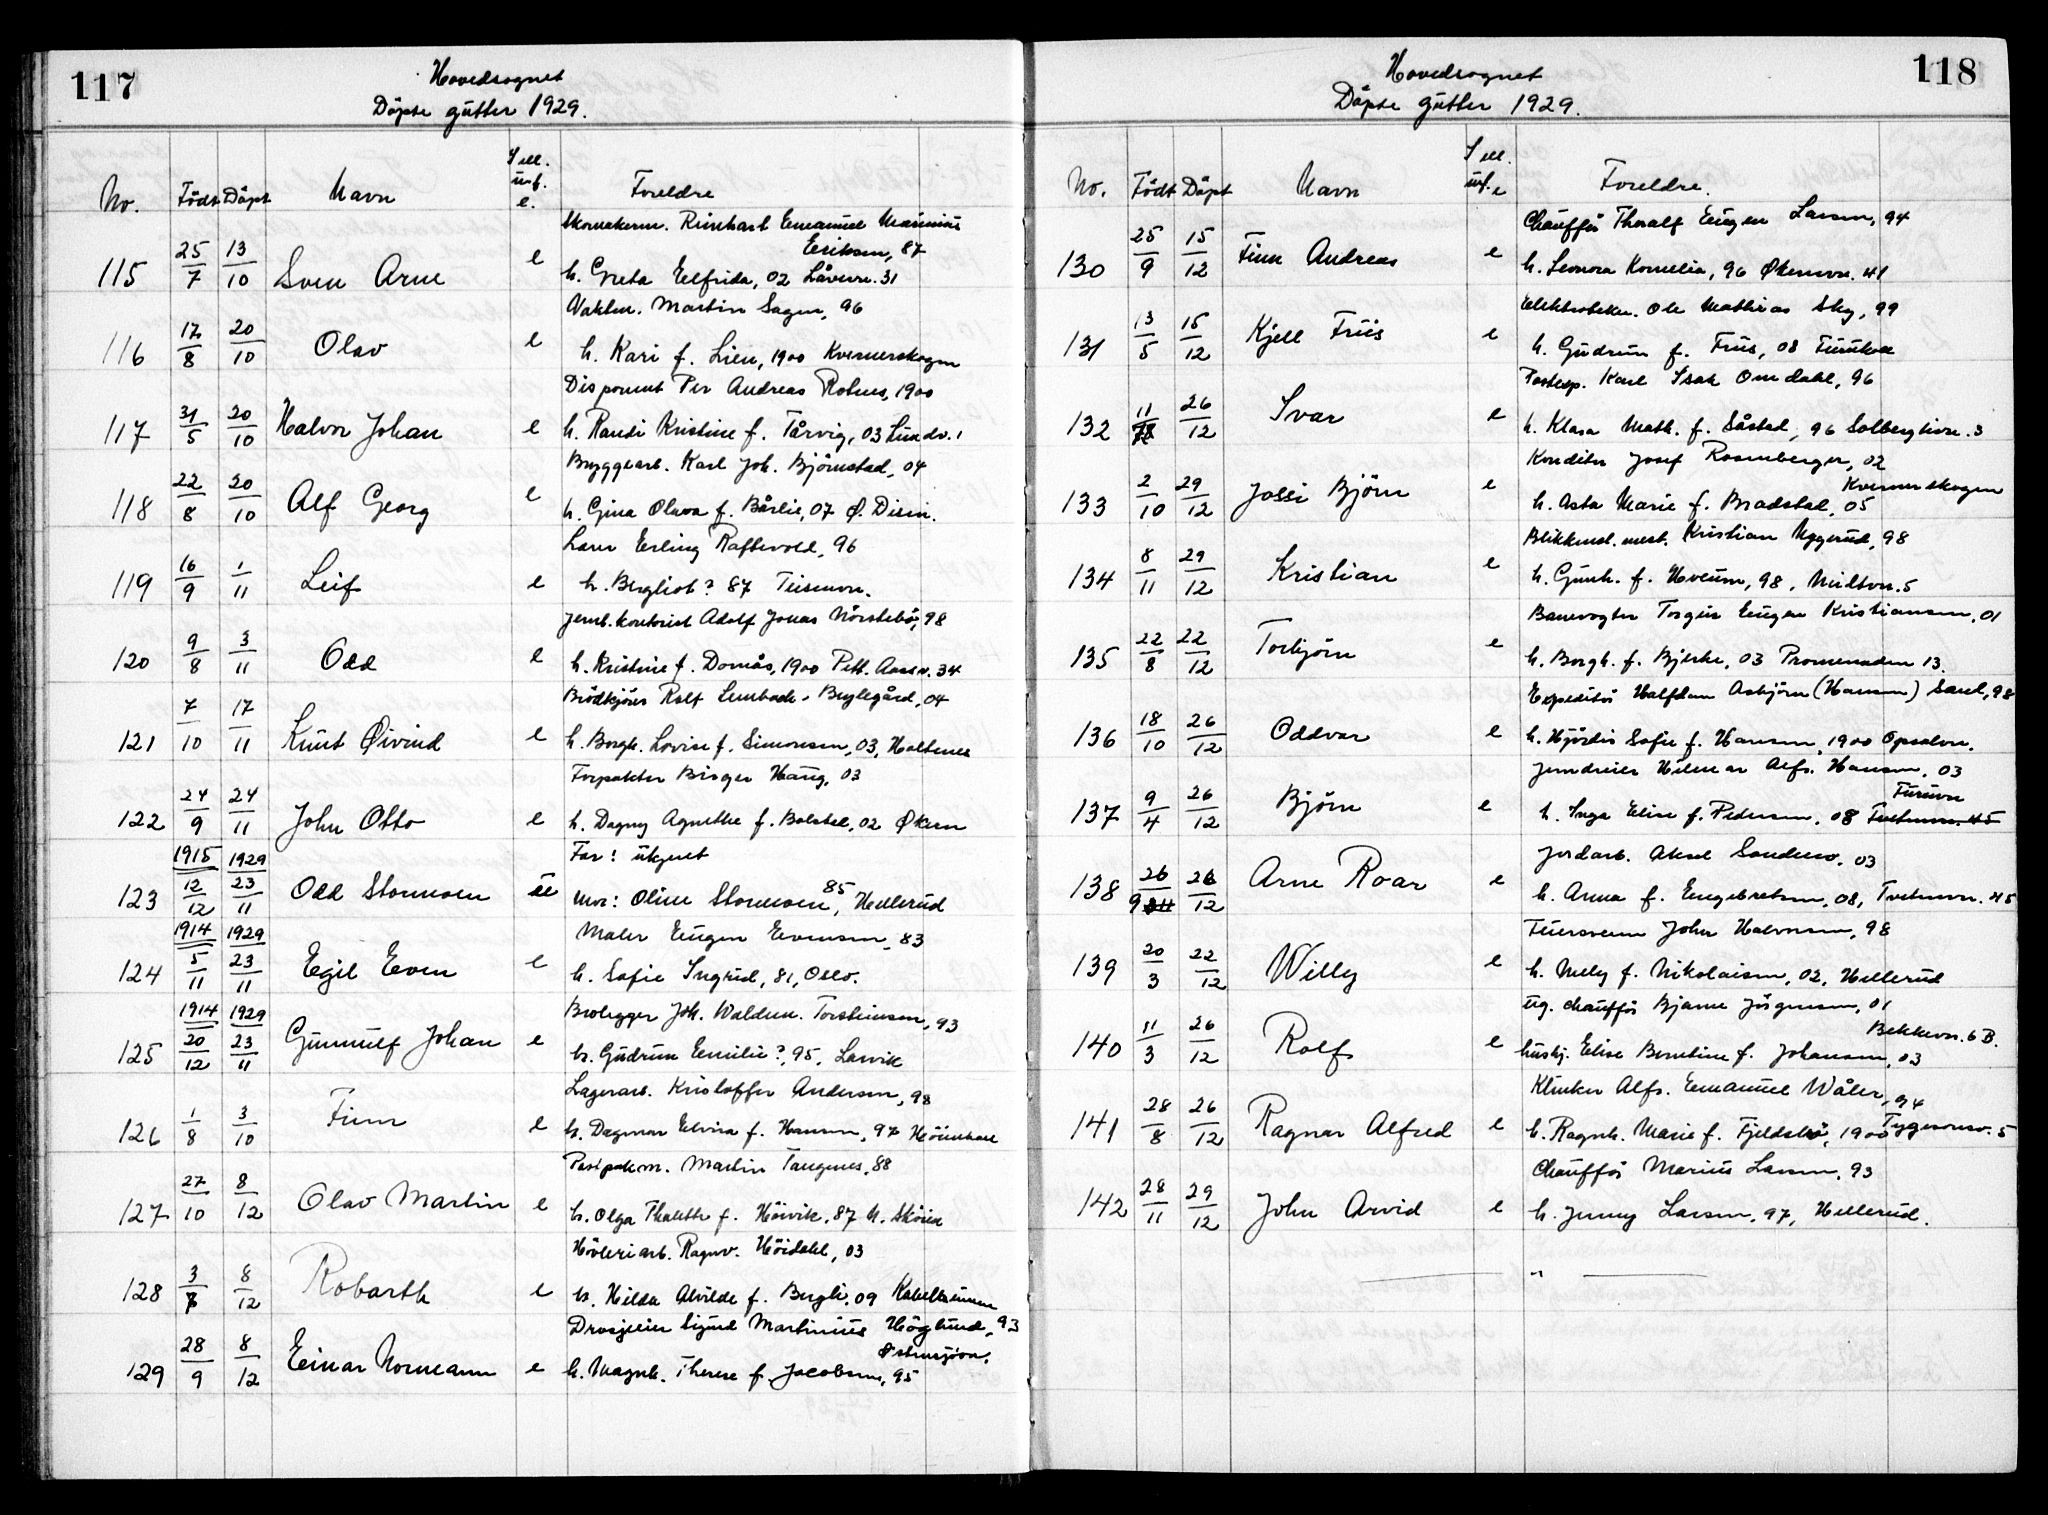 117
Hovedsognet
Döpte gutter 1929.
No. Födt Döpt Navn e. Foreldre
115 25/7 13/10 Sven Arne e Emanuel
Eriksen, 87
h. Greta Elfrida, 02 31
116 17/8 20/10 Olav e Vaktm. Martin Sagen, 96
h. Kari f. Lien, 1900 Kvernerskogen
117 31/5 20/10 Halvor Johan e Disponent Per Andreas 1900
h. Randi Kristine f. Tårvig, 03 Lundv. 1
118 22/8 20/10 Alf Georg e Bryggearb. Karl Joh. Björnstad, 04
h. Gina Olava f. Bårlie, 07 Ö. Disen.
119 16/9 1/11 Leif e Lærer Erling Raftevold, 96
h. Bergliot? 87 Teisenvn.
120 9/8 3/11 Odd e Jernb. kontorist Adolf Jonas 98
h. Kristine f. Domås, 1900 34
121 7/10 17/11 Knut Øivind e Brödkjörer Rolf Lembach - Beylegård, 04
h. Borgh. Lovise f. Simonsen, 03, Holtenes
122 24/9 24/11 John Otto e Forpakter Birger Haug, 03
h. Dagny Agnethe f. Bolstad, 02 Økern
1915 1929
123 12/12 23/11 Odd Stormoen ue Far: ukjent
Mor: Oline Stormoen, 85, Hellerud
1914 1929
124 5/11 23/11 Egil Even e Maler Eugen Evensen, 83
h. Sofie Ingrid, 81, Oslo.
1914 1929
125 20/12 23/11 Gunnulf Johan e Brolegger Joh. Waldem. Torsteinsen, 93
h. Gudrun Emilie? 95, Larvik
126 1/8 3/10 Finn e Lagerarb. Kristoffer Andersen, 98
h. Dagmar Elvira f. Hansen, 97
127 27/10 8/12 Olav Martin e Postpakm. Martin Tangenes, 88
h. Olga Thalette f. Höivik, 87
128 3/7 8/12 Robarth e Hövleriarb. Ragnv. Höidahl, 03
h. Hilda Alvilde f. Bergli, 09
129 28/9 8/12 Einar Normann e Drosjeeier Sigurd Martinius Höglund, 93
Østensjövn.
h. Magnh. Therese f. Jacobsen, 95
118
Hovedsognet
Döpte gutter 1929.
No. Födt Döpt Navn e Foreldre.
130 25/9 15/12 Finn Andreas e Chaufför Thoralf Eugen Larsen, 94
h. Leonora Kornelia, 96 Økernvn. 41
131 13/5 15/12 Kjell Friis e Elektrotekn. Ole Mathias Sky, 99
h. Gudrun f. Friis, 08
132 11/ 26/12 Ivar e Postexp. Karl Isak Omdahl, 96
h. Klara Math. f. Såstad, 96 Solberglivn. 3
133 2/10 29/12 Jossi Björn e Konditor Josef Rosenberger, 02
Kvernerskogen
h. Asta Marie f. Bradstad, 05
134 8/11 29/12 Kristian e Blikkensl. mest. Kristian Uggerud, 98
h. Gunh. f. Hveum, 98, 5
135 22/8 22/12 Torbjörn e Banevogter Torgeir Eugen Kristiansen, 01
h. Borgh. f. Bjerke, 03 Promenaden 13.
136 18/10 26/12 Oddvar e Expeditör Halfdan Asbjörn (Hansen) Sand, 98
h. Hjördis Sofie f. Hansen, 1900 Opsalvn.
137 9/4 26/12 Björn e Jerndreier Hilmar Alfr. Hansen, 03
Furuvn
h. Inga Elise f. Pedersen, 08 Tvetenvn. 45
138 26/9 26/12 Arne Roar e Jordarb. Aksel Sandmo, 03
h. Anna f. Engebretsen, 08, Tvetenvn. 45
139 20/3 22/12 Willy e John Halvorsen, 98
h. Mely f. Nikolaisen, 02, Hellerud
140 11/3 26/12 Rolf e ug. chaufför Bjarne Jörgensen, 01
Bekkevn. 6 B.
husbj. Elise Berntine f. Johansen, 03
141 28/8 26/12 Ragnar Alfred e Klinker Alfr. Emanuel Wåler, 94
h. Ragnh. Marie f. Fjeldsbö, 1900 5
142 28/11 29/12 John Arvid e Chaufför Marius Larsen, 93
h. Jenny Larsen, 97, Hellerud.